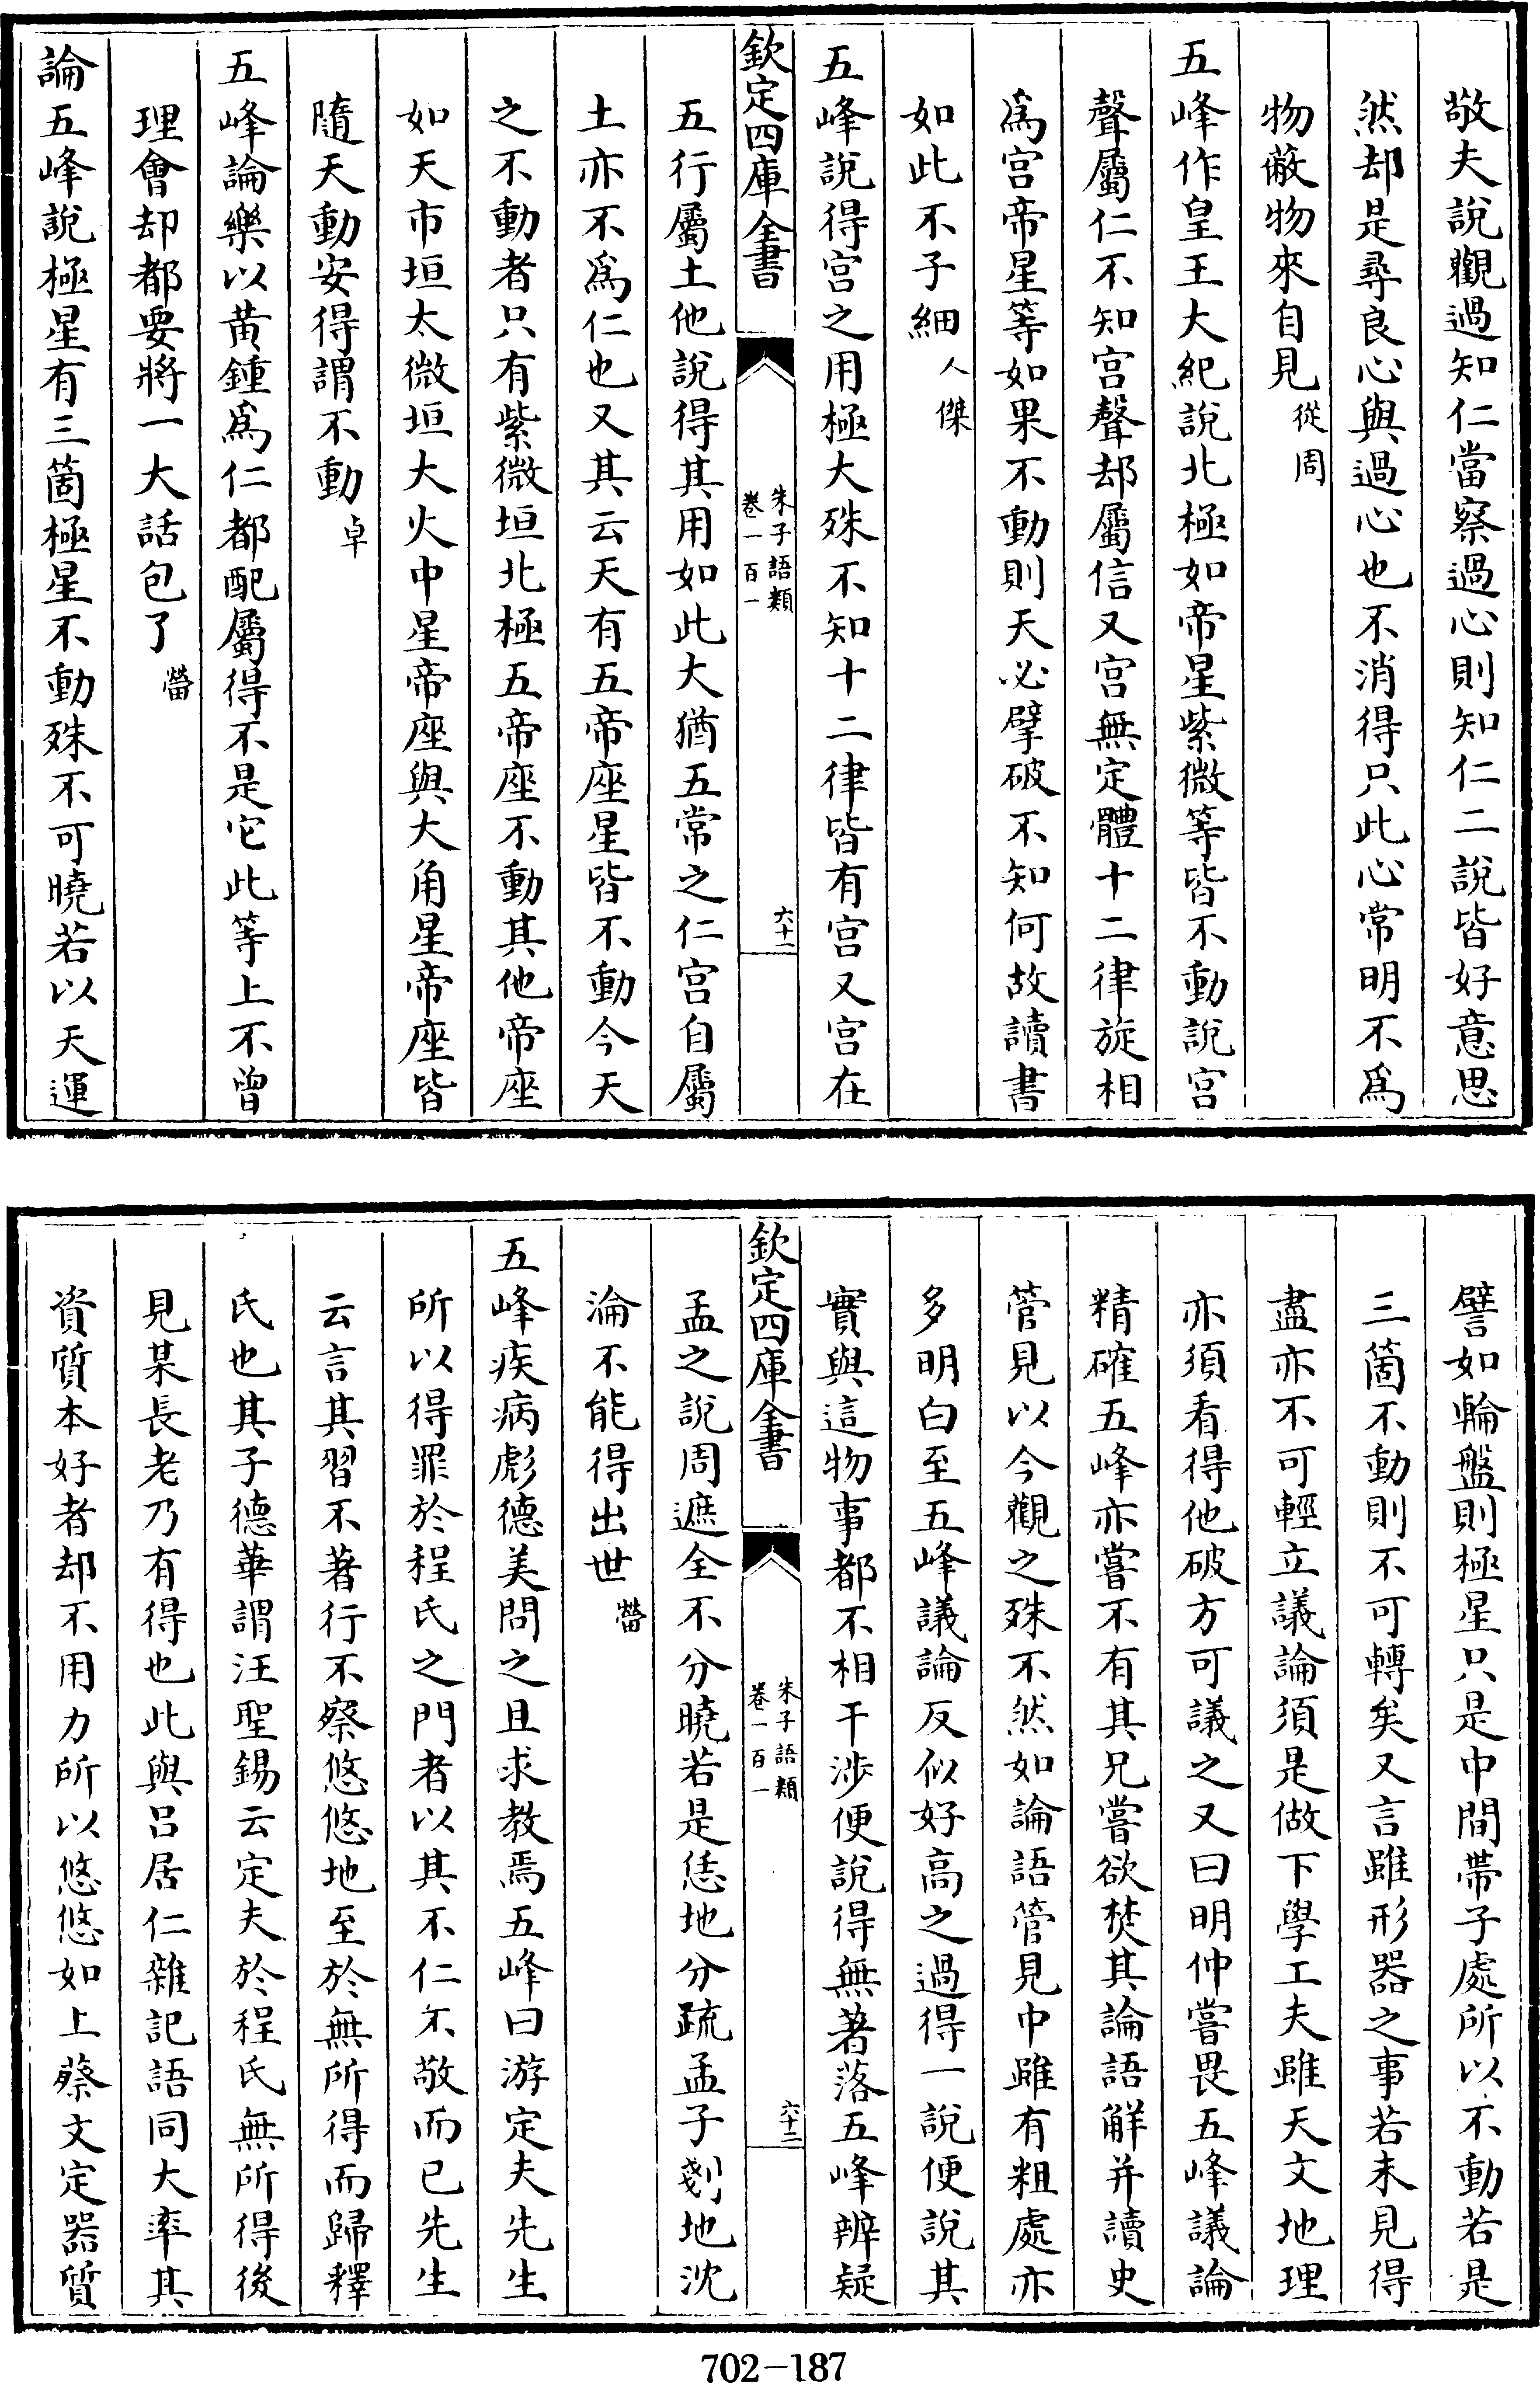 敬夫說觀過知仁當察過心則知仁二說皆好意思
然却是尋良心與過心也不消得只此心常明不爲
物蔽物來自見從周
五峰作皇王大紀說北極如帝星紫微等皆不動說宫
聲屬仁不知宫聲却屬信又宫無定體十二律旋相
爲宫帝星等如果不動則天必擘破不知何故讀書
如此不子細人傑
五峰說得宫之用極大殊不知十二律皆有宫又宫在
欽定四庫全書
朱子語類
卷一百一
六十一
五行屬土他說得其用如此大猶五常之仁宫自屬
土亦不爲仁也又其云天有五帝座星皆不動今天
之不動者只有紫微垣北極五帝座不動其他帝座
如天市垣太微垣大火中星帝座與大角星帝座皆
隨天動安得謂不動卓
五峰論樂以黄鍾爲仁都配屬得不是它此等上不曽
理會却都要將一大話包了㽦
論五峰說極星有三箇極星不動殊不可曉若以天運
譬如輪盤則極星只是中間帶子處所以不動若是
三箇不動則不可轉矣又言雖形器之事若未見得
盡亦不可輕立議論須是做下學工夫雖天文地理
亦須看得他破方可議之又曰明仲嘗畏五峰議論
精確五峰亦嘗不有其兄嘗欲焚其論語解并讀史
管見以今觀之殊不然如論語管見中雖有粗處亦
多明白至五峰議論反似好高之過得一說便說其
實與這物事都不相干涉便說得無著落五峰辨疑
欽定四庫全書
朱子語類
卷一百一
六十二
孟之說周遮全不分曉若是恁地分疏孟子剗地沈
淪不能得出世㽦
五峰疾病彪德美問之且求教焉五峰曰游定夫先生
所以得罪於程氏之門者以其不仁不敬而已先生
云言其習不著行不察悠悠地至於無所得而歸釋
氏也其子德華謂汪聖錫云定夫於程氏無所得後
見某長老乃有得也此與吕居仁雜記語同大率其
資質本好者却不用力所以悠悠如上蔡文定器質
702-187